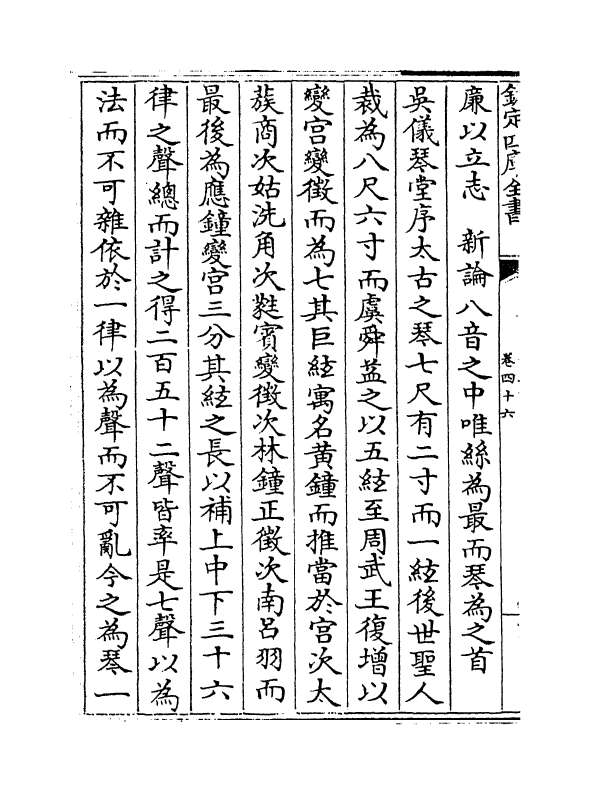 欽定四庫全書
卷四十六
廉以立志　新論八音之中唯絲為最而琴為之首
吳儀琴堂序太古之琴七尺有二寸而一絃後世聖人
裁為八尺六寸而虞舜益之以五絃至周武王復增以
變宫變徵而為七其巨絃寓名黄鐘而推當於宫次太
蔟商次姑洗角次蕤賓變徵次林鐘正徵次南呂羽而
最後為應鐘變宫三分其絃之長以補上中下三十六
律之聲總而計之得二百五十二聲皆率是七聲以為
法而不可雜依於一律以為聲而不可亂今之為琴一